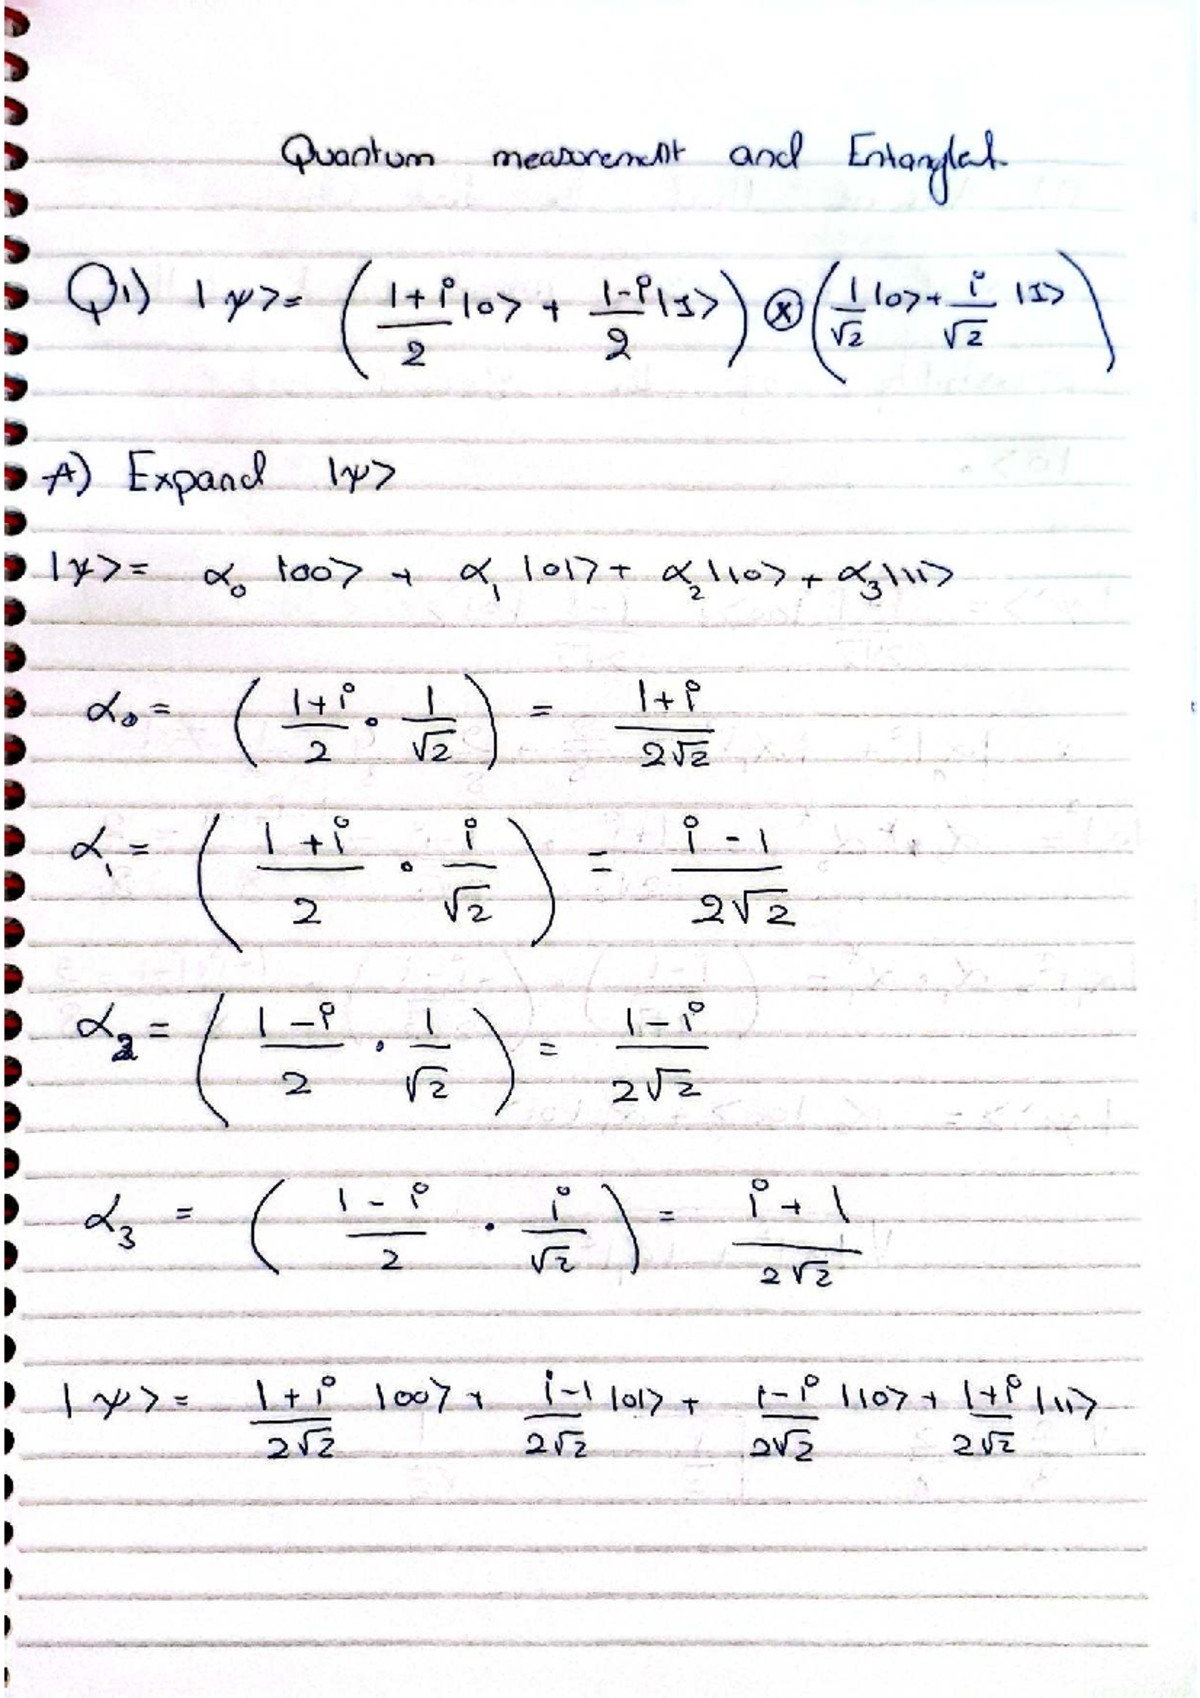 Quantum measurement and Entanglet.
Q1) |ψ> = ( 1+i/2 |0> + 1-i/2 |1> ) ⊗ ( 1/√2 |0> + i/√2 |1> )
A) Expand |ψ>
|ψ> = α₀ |00> + α₁ |01> + α₂ |10> + α₃ |11>
α₀ = ( 1+i/2 . 1/√2 ) = 1+i/2√2
α₁ = ( 1+i/2 . i/√2 ) = i-1/2√2
α₂ = ( 1-i/2 . 1/√2 ) = 1-i/2√2
α₃ = ( 1-i/2 . i/√2 ) = i+1/2√2
|ψ> = 1+i/2√2 |00> + i-1/2√2 |01> + 1-i/2√2 |10> + 1+i/2√2 |11>